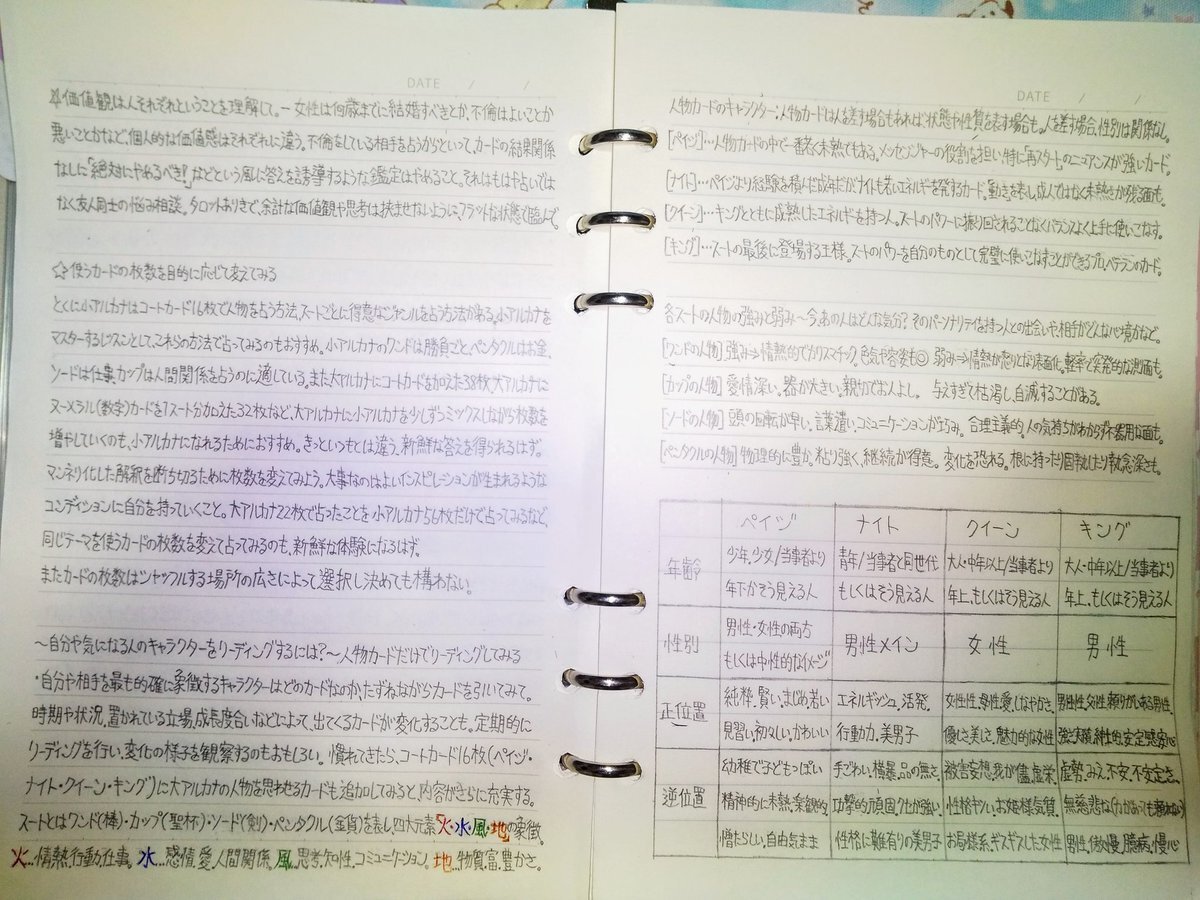 DATE / /
☆価値観は人それぞれということを理解して。ー女性は何歳までに結婚すべきとか、不倫はよいことか
悪いことかなど、個人的な価値感はそれぞれに違う。不倫をしている相手を占うからといって、カードの結果関係
なしに「絶対にやめるべき!」などという風に答えを誘導するような鑑定はやめること。それはもはや占いでは
なく友人同士の悩み相談。タロットありきで、余計な価値観や思考は挟ませないように、フラットな状態で臨んで。
☆使うカードの枚数を目的に応じて変えてみる
とくに小アルカナはコートカード16枚で人物を占う方法、スートごとに得意なジャンルを占う方法がある。小アルカナを
マスターするレッスンとして、これらの方法で占ってみるのもおすすめ。小アルカナのワンドは勝負ごと、ペンタクルはお金、
ソードは仕事、カップは人間関係を占うのに適している。また大アルカナにコートカードを加えた38枚、大アルカナに
ヌーメラル(数字)カードを1スート分加えた32枚など、大アルカナに小アルカナを少しずつミックスしながら枚数を
増やしていくのも、小アルカナになれるためにおすすめ。きっといつもとは違う、新鮮な答えを得られるはず。
マンネリ化した解釈を断ち切るために枚数を変えてみよう。大事なのはよいインスピレーションが生まれるような
コンディションに自分を持っていくこと。大アルカナ22枚で占ったことを小アルカナ56枚だけで占ってみるなど、
同じテーマを使うカードの枚数を変えて占ってみるのも、新鮮な体験になるはず。
またカードの枚数はシャッフルする場所の広さによって選択し決めても構わない。
〜自分や気になる人のキャラクターをリーディングするには?〜人物カードだけでリーディングしてみる
・自分や相手を最も的確に象徴するキャラクターはどのカードなのか、たずねながらカードを引いてみて。
時期や状況、置かれている立場、成長度合いなどによって、出てくるカードが変化することも。定期的に
リーディングを行い、変化の様子を観察するのもおもしろい。慣れてきたら、コートカード16枚(ペイジ・
ナイト・クイーン・キング)に大アルカナの人物を思わせるカードも追加してみると、内容がさらに充実する。
スートとはワンド(棒)・カップ(聖杯)・ソード(剣)・ペンタクル(金貨)を表し、四大元素「火・水・風・地」の象徴。
火…情熱、行動、仕事。水…感情、愛、人間関係。風…思考、知性、コミュニケーション。地…物質、富、豊かさ。
DATE / /
人物カードのキャラクター:人物カードは人を差す場合もあれば、状態や性質を表す場合も。人を差す場合、性別は関係なし。
[ペイジ]…人物カードの中で一番若く未熟でもある。メッセンジャーの役割を担い、特に「再スタート」のニュアンスが強いカード。
[ナイト]…ペイジより経験を積んだ成年だがナイトも若いエネルギーを発するカード。動きを表し、成人ではなく未熟さが残る面も。
[クイーン]…キングとともに成熟したエネルギーを持つ人。スートのパワーに振り回されることなくバランスよく上手に使いこなす。
[キング]…スートの最後に登場する王様。スートのパワーを自分のものとして完璧に使いこなすことができるプロ、ベテランのカード。
各スートの人物の強みと弱み〜今、あの人はどんな気分? そのパーソナリティを持つ人との出会いや、相手がどんな心境かなど。
[ワンドの人物] 強み→情熱的でカリスマチック。色気や容姿も◎ 弱み→情熱が怒りとなり表面化。軽率で突発的な側面も。
[カップの人物] 愛情深い。器が大きい。親切でお人よし。 与えすぎて枯渇し、自滅することがある。
[ソードの人物] 頭の回転が早い。言葉遣い、コミュニケーションが巧み。合理主義的。人の気持ちがわからず不器用な面も。
[ペンタクルの人物] 物理的に豊か。粘り強く、継続が得意。変化を恐れる。根に持ったり固執したり執念深さも。
ペイジ ナイト クイーン キング
年齢 少年、少女/当事者より 青年/当事者と同世代 大人・中年以上/当事者より 大人・中年以上/当事者より
年下かそう見える人 もしくはそう見える人 年上、もしくはそう見える人 年上、もしくはそう見える人
性別 男性・女性の両方 男性メイン 女性 男性
もしくは中性的なイメージ
正位置 純粋、賢い、まじめ、若い エネルギッシュ、活発、 女性性、母性愛、しなやかさ、 男性性、父性、頼りがいある男性、
見習い、初々しい、かわいい 行動力、美男子 優しさ、美しさ、魅力的な女性 強さ、実積、紳士的、安定感、安心
逆位置 幼稚で子どもっぽい 手ごわい、横暴、品の無さ、 被害妄想、我が儘、虚栄、 虚勢、みえ、不安、不安定さ、
精神的に未熟、楽観的、 攻撃的、頑固、クセが強い、 性格キツい、お姫様気質、 無慈悲な
憎たらしい、自由気まま 性格に難有りの美男子 お局様系、ギスギスした女性 男性、傲慢、臆病、慢心